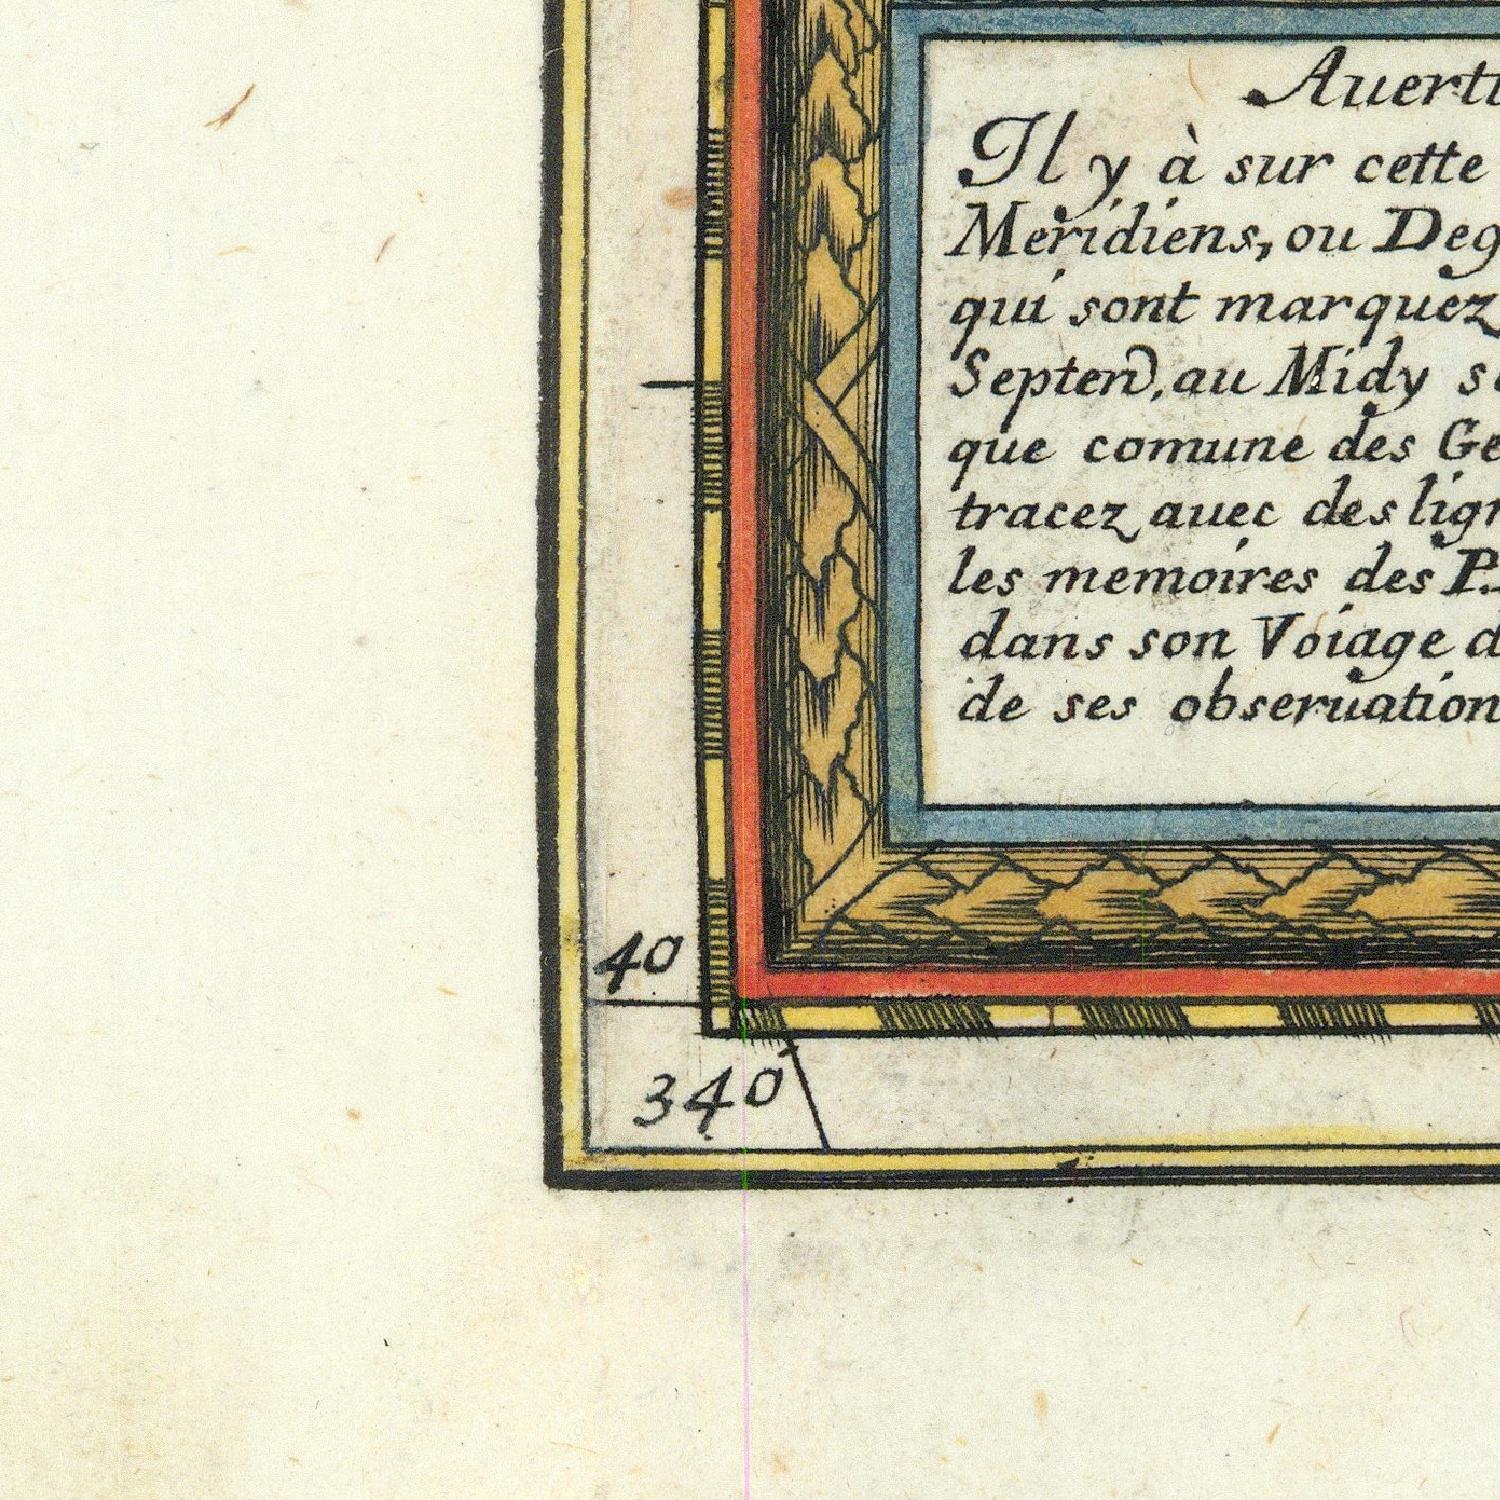 Auerti
Il y à sur cette
Meridiens, ou Deg
qui sont marquez
Septen. au Midy s
que comune des Ge
tracez auec des lign
les memoires des P.
dans son Voiage d
de ses obseruation
40
340